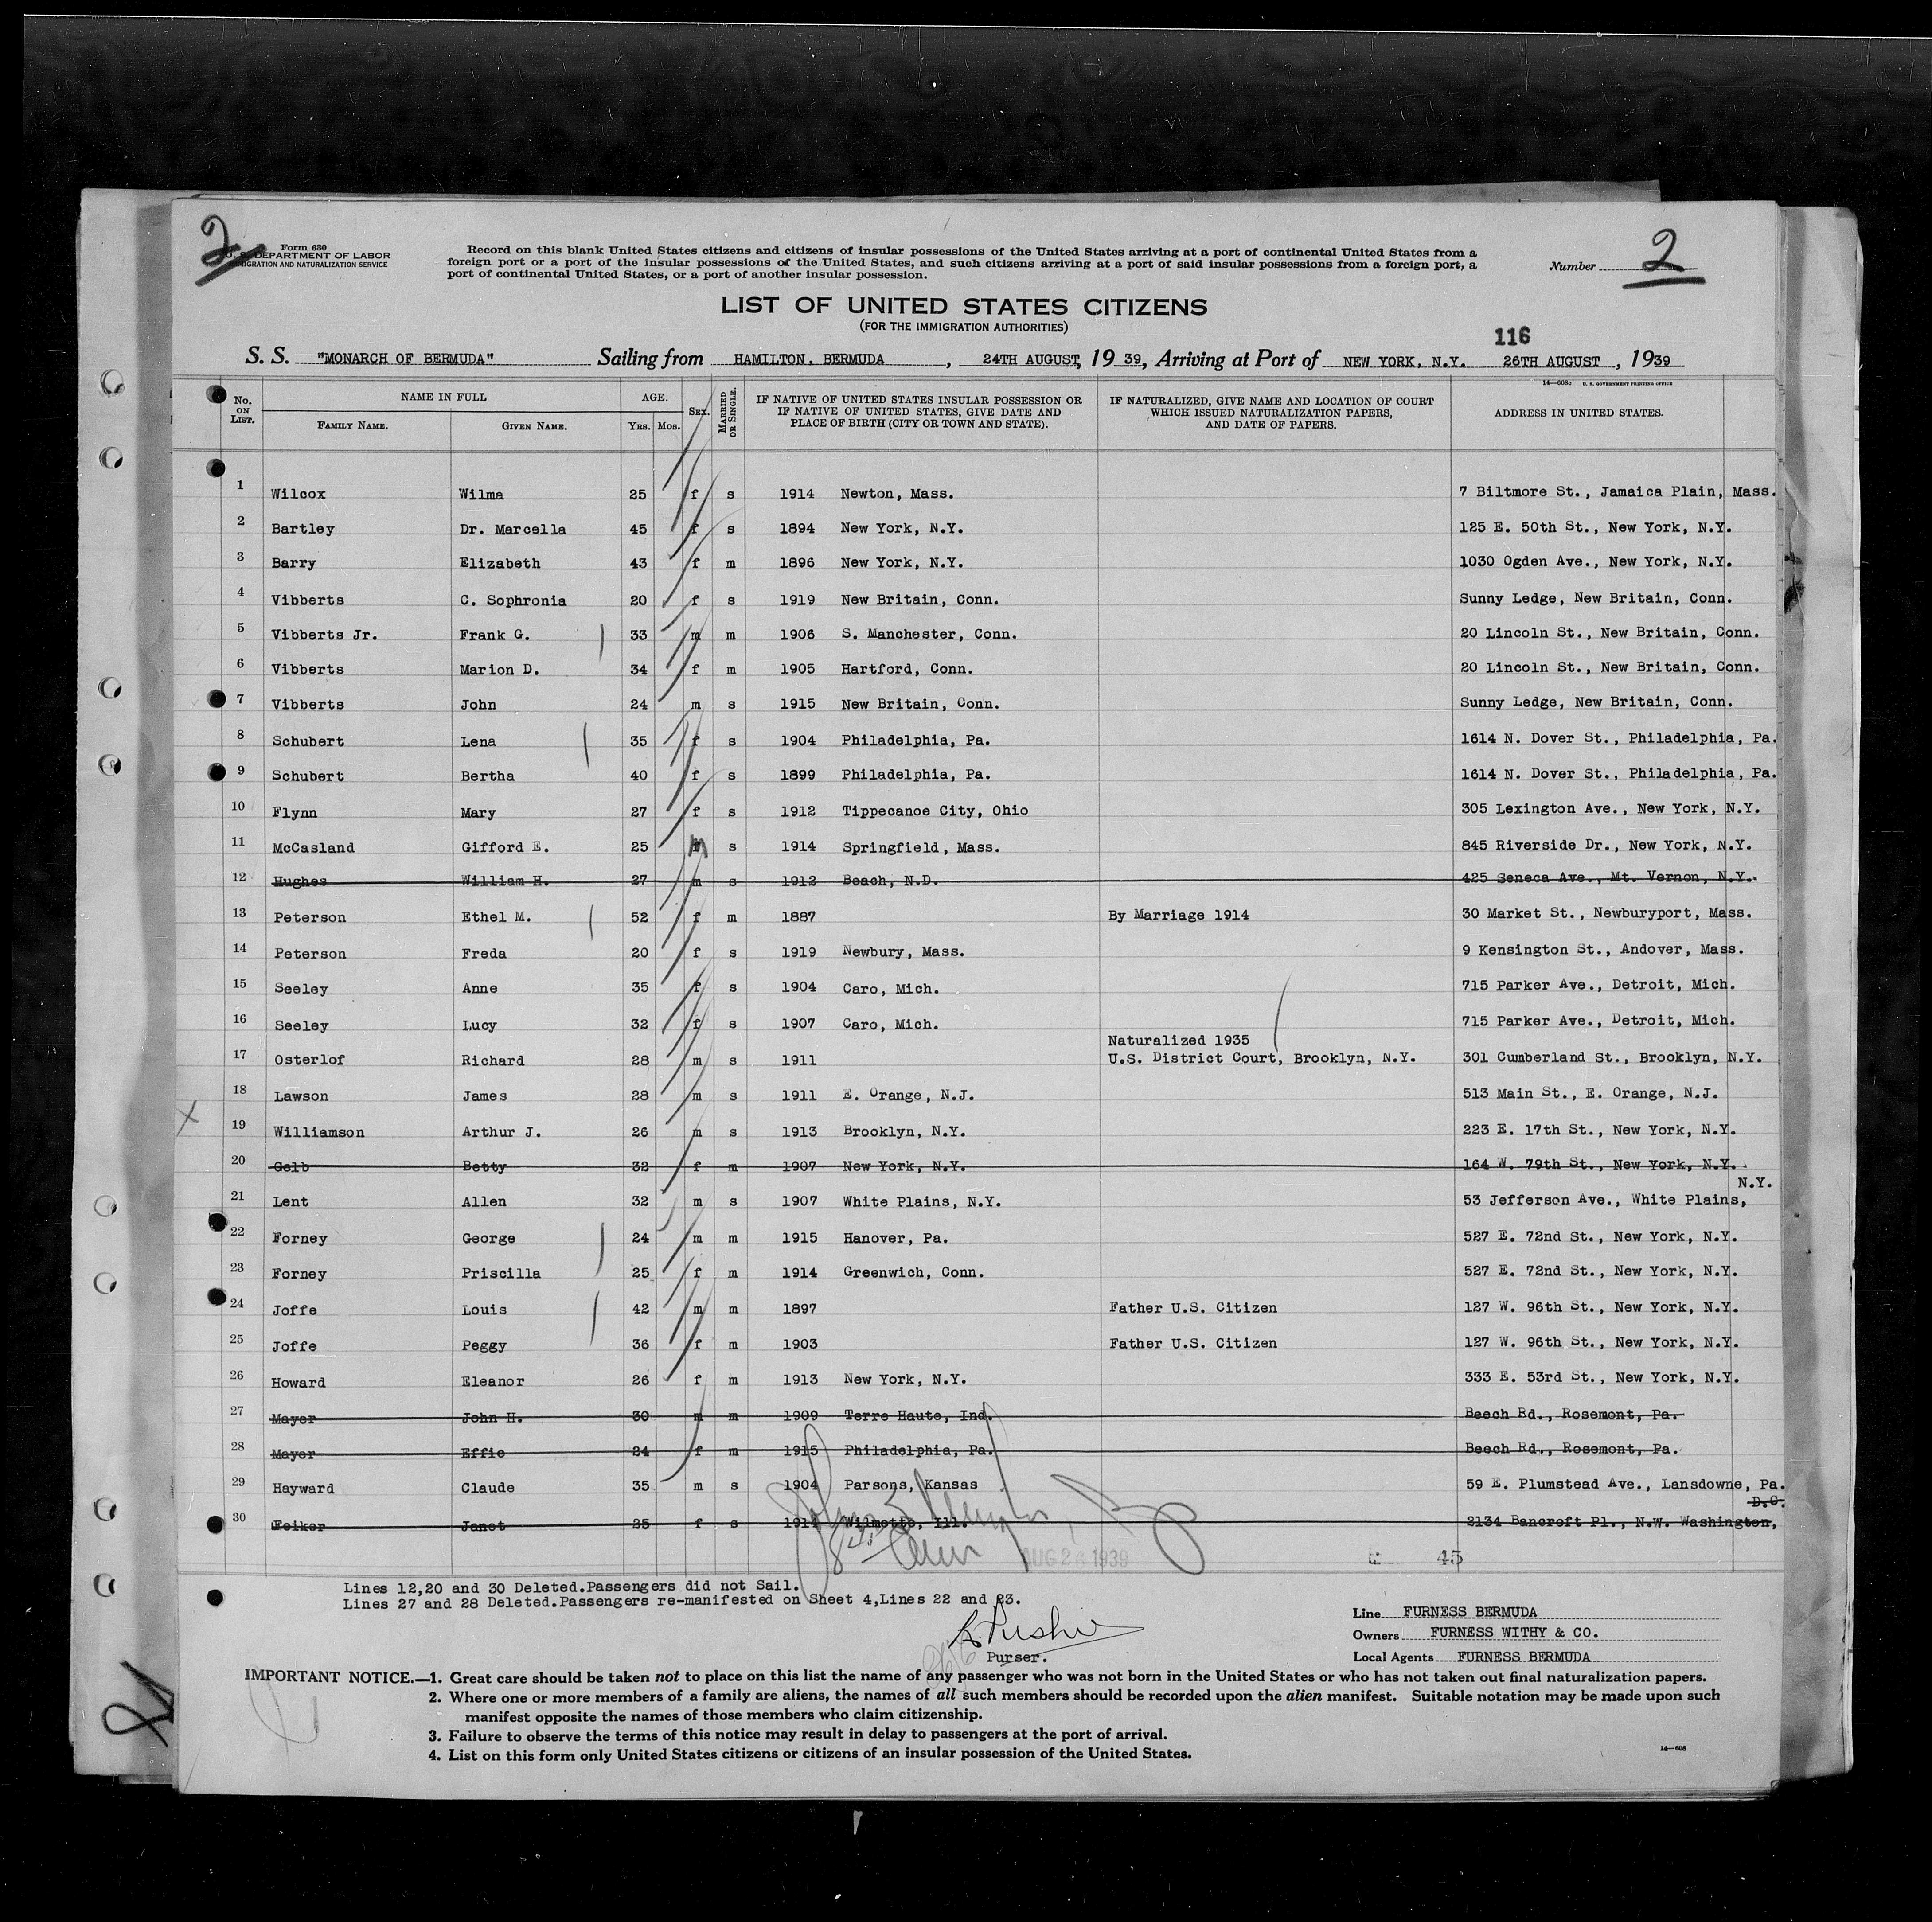 2
2
Form 630
U. S. DEPARTMENT OF LABOR
IMMIGRATION AND NATURALIZATION SERVICE
Record on this blank United States citizens and citizens of insular possessions of the United States arriving at a port of continental United States from a
foreign port or a port of the insular possessions of the United States, and such citizens arriving at a port of said insular possessions from a foreign port, a
port of continental United States, or a port of another insular possession.
Number
LIST OF UNITED STATES CITIZENS
(FOR THE IMMIGRATION AUTHORITIES)
116
S. S. "MONARCH OF BERMUDA" Sailing from HAMILTON, BERMUDA, 24TH AUGUST, 19 39, Arriving at Port of NEW YORK, N.Y. 26TH AUGUST, 1939
14—608c U. S. GOVERNMENT PRINTING OFFICE
No. ON LIST. NAME IN FULL FAMILY NAME. GIVEN NAME. AGE. YRS. MOS. SEX. MARRIED OR SINGLE. IF NATIVE OF UNITED STATES INSULAR POSSESSION OR IF NATIVE OF UNITED STATES, GIVE DATE AND PLACE OF BIRTH (CITY OR TOWN AND STATE). IF NATURALIZED, GIVE NAME AND LOCATION OF COURT WHICH ISSUED NATURALIZATION PAPERS, AND DATE OF PAPERS. ADDRESS IN UNITED STATES.
1 Wilcox Wilma 25 f s 1914 Newton, Mass. 7 Biltmore St., Jamaica Plain, Mass.
2 Bartley Dr. Marcella 45 f s 1894 New York, N.Y. 125 E. 50th St., New York, N.Y.
3 Barry Elizabeth 43 f m 1896 New York, N.Y. 1030 Ogden Ave., New York, N.Y.
4 Vibberts C. Sophronia 20 f s 1919 New Britain, Conn. Sunny Ledge, New Britain, Conn.
5 Vibberts Jr. Frank G. 33 m m 1906 S. Manchester, Conn. 20 Lincoln St., New Britain, Conn.
6 Vibberts Marion D. 34 f m 1905 Hartford, Conn. 20 Lincoln St., New Britain, Conn.
7 Vibberts John 24 m s 1915 New Britain, Conn. Sunny Ledge, New Britain, Conn.
8 Schubert Lena 35 f s 1904 Philadelphia, Pa. 1614 N. Dover St., Philadelphia, Pa.
9 Schubert Bertha 40 f s 1899 Philadelphia, Pa. 1614 N. Dover St., Philadelphia, Pa.
10 Flynn Mary 27 f s 1912 Tippecanoe City, Ohio 305 Lexington Ave., New York, N.Y.
11 McCasland Gifford E. 25 m s 1914 Springfield, Mass. 845 Riverside Dr., New York, N.Y.
12 Hughes William H. 27 m s 1912 Beach, N.D. 425 Seneca Ave., Mt. Vernon, N.Y.
13 Peterson Ethel M. 52 f m 1887 By Marriage 1914 30 Market St., Newburyport, Mass.
14 Peterson Freda 20 f s 1919 Newbury, Mass. 9 Kensington St., Andover, Mass.
15 Seeley Anne 35 f s 1904 Caro, Mich. 715 Parker Ave., Detroit, Mich.
16 Seeley Lucy 32 f s 1907 Caro, Mich. 715 Parker Ave., Detroit, Mich.
Naturalized 1935
17 Osterlof Richard 28 m s 1911 U.S. District Court, Brooklyn, N.Y. 301 Cumberland St., Brooklyn, N.Y.
18 Lawson James 28 m s 1911 E. Orange, N.J. 513 Main St., E. Orange, N.J.
X
19 Williamson Arthur J. 26 m s 1913 Brooklyn, N.Y. 223 E. 17th St., New York, N.Y.
20 Gelb Betty 32 f m 1907 New York, N.Y. 164 W. 79th St., New York, N.Y.
N.Y.
21 Lent Allen 32 m s 1907 White Plains, N.Y. 53 Jefferson Ave., White Plains,
22 Forney George 24 m m 1915 Hanover, Pa. 527 E. 72nd St., New York, N.Y.
23 Forney Priscilla 25 f m 1914 Greenwich, Conn. 527 E. 72nd St., New York, N.Y.
24 Joffe Louis 42 m m 1897 Father U.S. Citizen 127 W. 96th St., New York, N.Y.
25 Joffe Peggy 36 f m 1903 Father U.S. Citizen 127 W. 96th St., New York, N.Y.
26 Howard Eleanor 26 f m 1913 New York, N.Y. 333 E. 53rd St., New York, N.Y.
27 Mayer John H. 30 m m 1909 Terre Haute, Ind. Beech Rd., Rosemont, Pa.
28 Mayer Effie 24 f m 1915 Philadelphia, Pa. Beech Rd., Rosemont, Pa.
29 Hayward Claude 35 m s 1904 Parsons, Kansas 59 E. Plumstead Ave., Lansdowne, Pa.
D.C.
30 Feiker Janet 25 f s 1914 Wilmette, Ill. 2134 Bancroft Pl., N.W. Washington,
AUG 26 1939
45
Lines 12,20 and 30 Deleted.Passengers did not Sail.
Lines 27 and 28 Deleted.Passengers re-manifested on Sheet 4,Lines 22 and 23.
Purser.
Line FURNESS BERMUDA
Owners FURNESS WITHY & CO.
Local Agents FURNESS BERMUDA
IMPORTANT NOTICE.—1. Great care should be taken not to place on this list the name of any passenger who was not born in the United States or who has not taken out final naturalization papers.
2. Where one or more members of a family are aliens, the names of all such members should be recorded upon the alien manifest. Suitable notation may be made upon such
manifest opposite the names of those members who claim citizenship.
3. Failure to observe the terms of this notice may result in delay to passengers at the port of arrival.
4. List on this form only United States citizens or citizens of an insular possession of the United States.
14—608